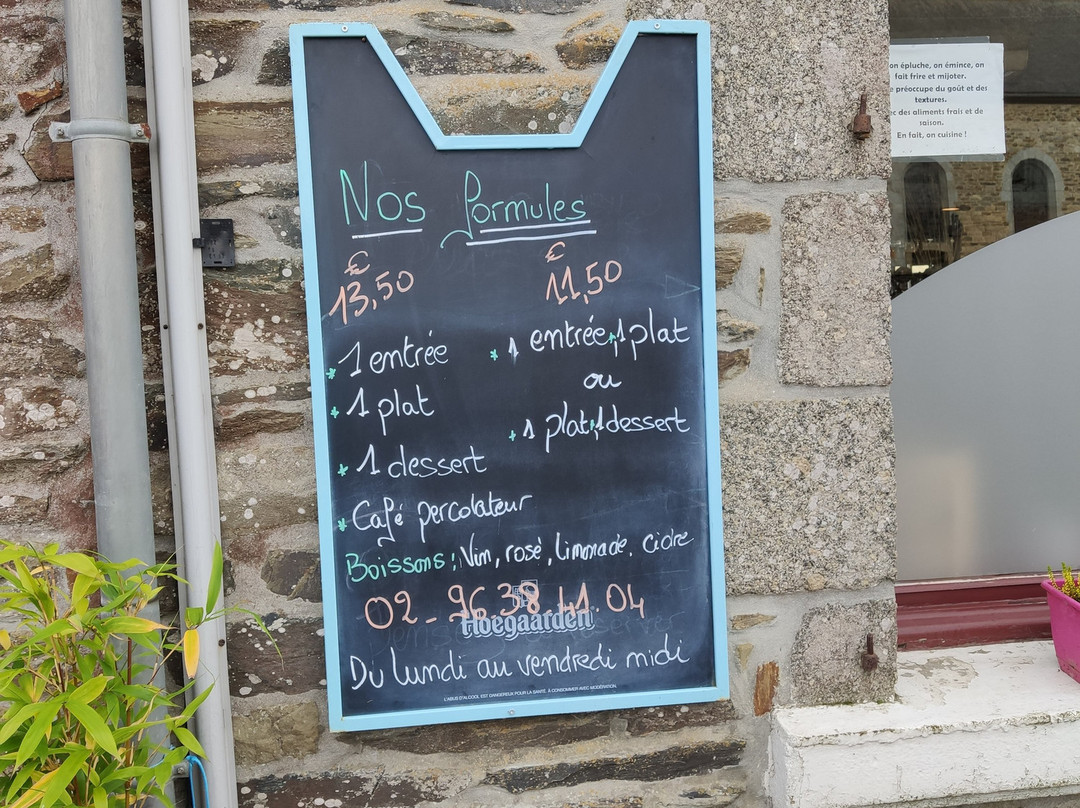 Nos Formules
€
13,50
€
11,50
* 1 entrée
* 1 plat
* 1 dessert
* Café percolateur
* 1 entrée, 1 plat
ou
* 1 plat, 1 dessert
Boissons : Vin, rosé, limonade, cidre
02_ 96 38 41 04
Hoegaarden
Du lundi au vendredi midi
L'ABUS D'ALCOOL EST DANGEREUX POUR LA SANTÉ. À CONSOMMER AVEC MODÉRATION.
on épluche, on émince, on
fait frire et mijoter.
préoccupe du goût et des
textures.
des aliments frais et de
saison.
En fait, on cuisine !